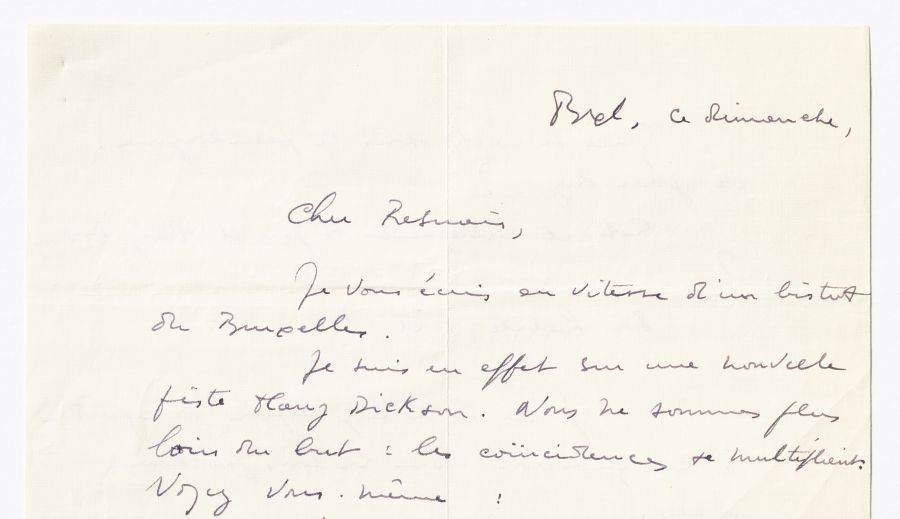 Bxel, ce dimanche,
Cher Resnais,
Je vous écris en vitesse d'un bistot
de Bruxelles.
Je suis en effet sur une nouvelle
piste Harry Dickson. Nous ne sommes plus
loin du but : les coïncidences se multiplient.
Voyez vous-même :